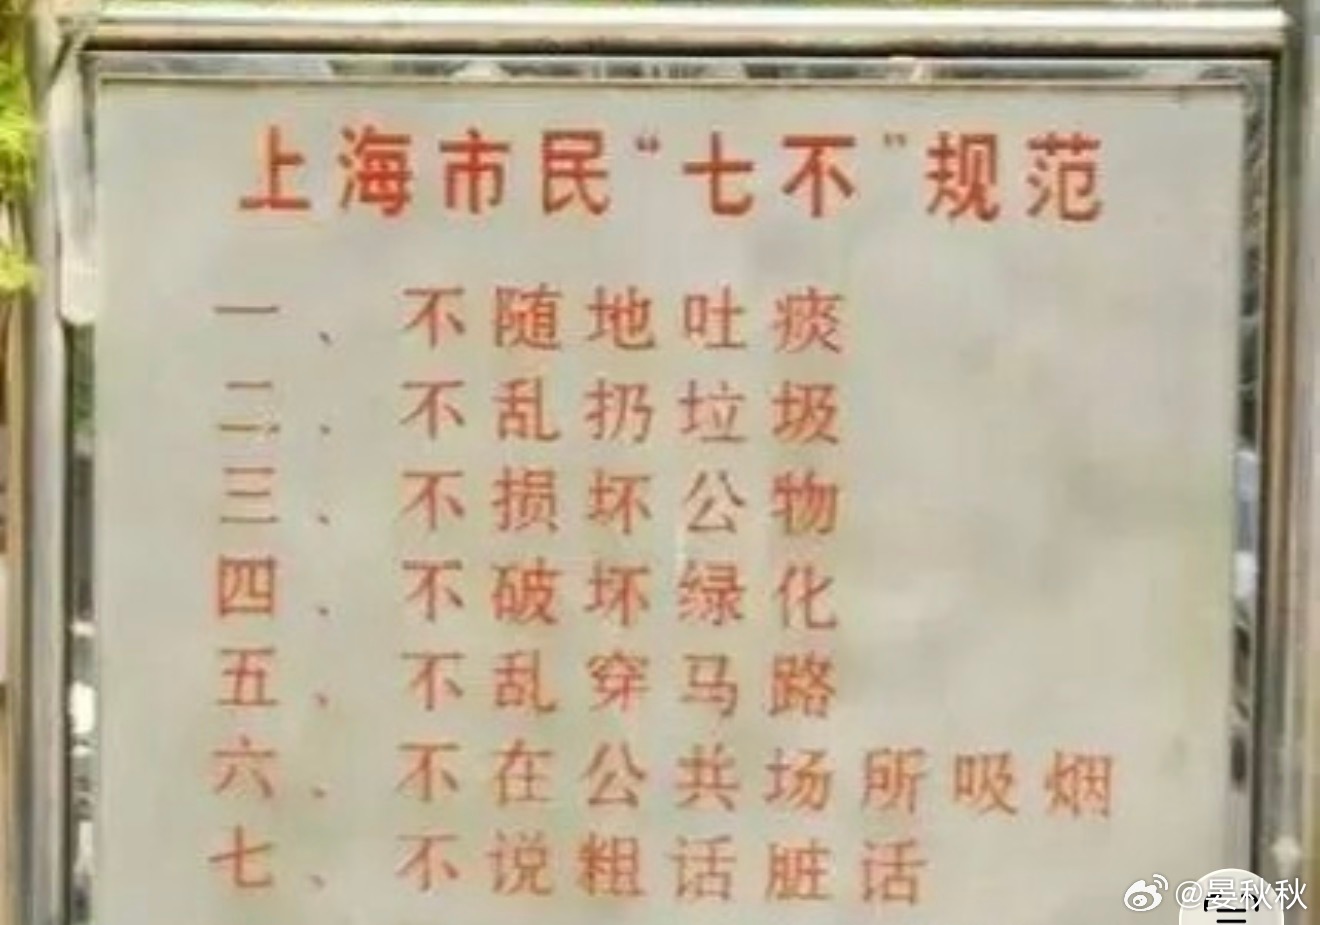 上海市民“七不”规范
一、不随地吐痰
二、不乱扔垃圾
三、不损坏公物
四、不破坏绿化
五、不乱穿马路
六、不在公共场所吸烟
七、不说粗话脏话
@晏秋秋